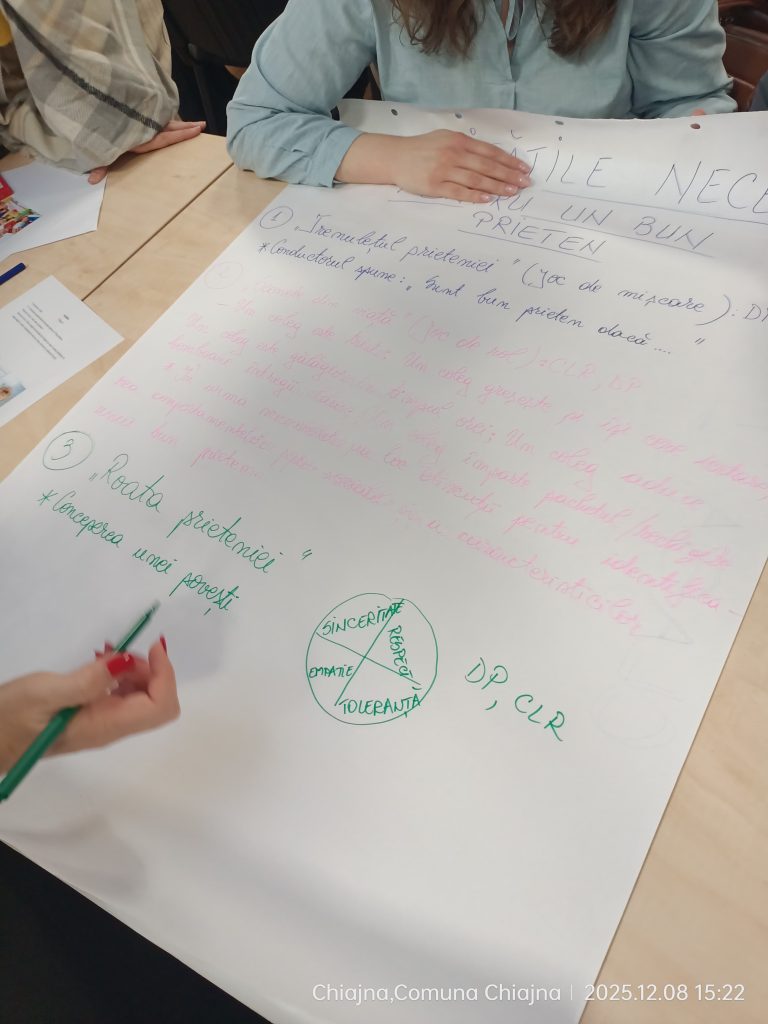 ĂȚILE NECE
UN BUN
PRIETEN
1 „Trenulețul prieteniei" (joc de mișcare): DP
* Conductorul spune: „Sunt bun prieten dacă...."
2 din viață" (joc de rol): CLR, DP
- Un coleg este trist; Un coleg greșește și își cere scuze;
Un coleg este gălăgios în timpul orei; Un coleg aduce
bomboane Un coleg împarte pachetul
* În urma loc discuții pentru identificarea
comportamentelor și a caracteristicilor
unui bun prieten.
3 „Roata prieteniei"
* Conceperea unei povești
SINCERITATE
RESPECT
EMPATIE
TOLERANȚA
DP, CLR
Chiajna,Comuna Chiajna | 2025.12.08 15:22